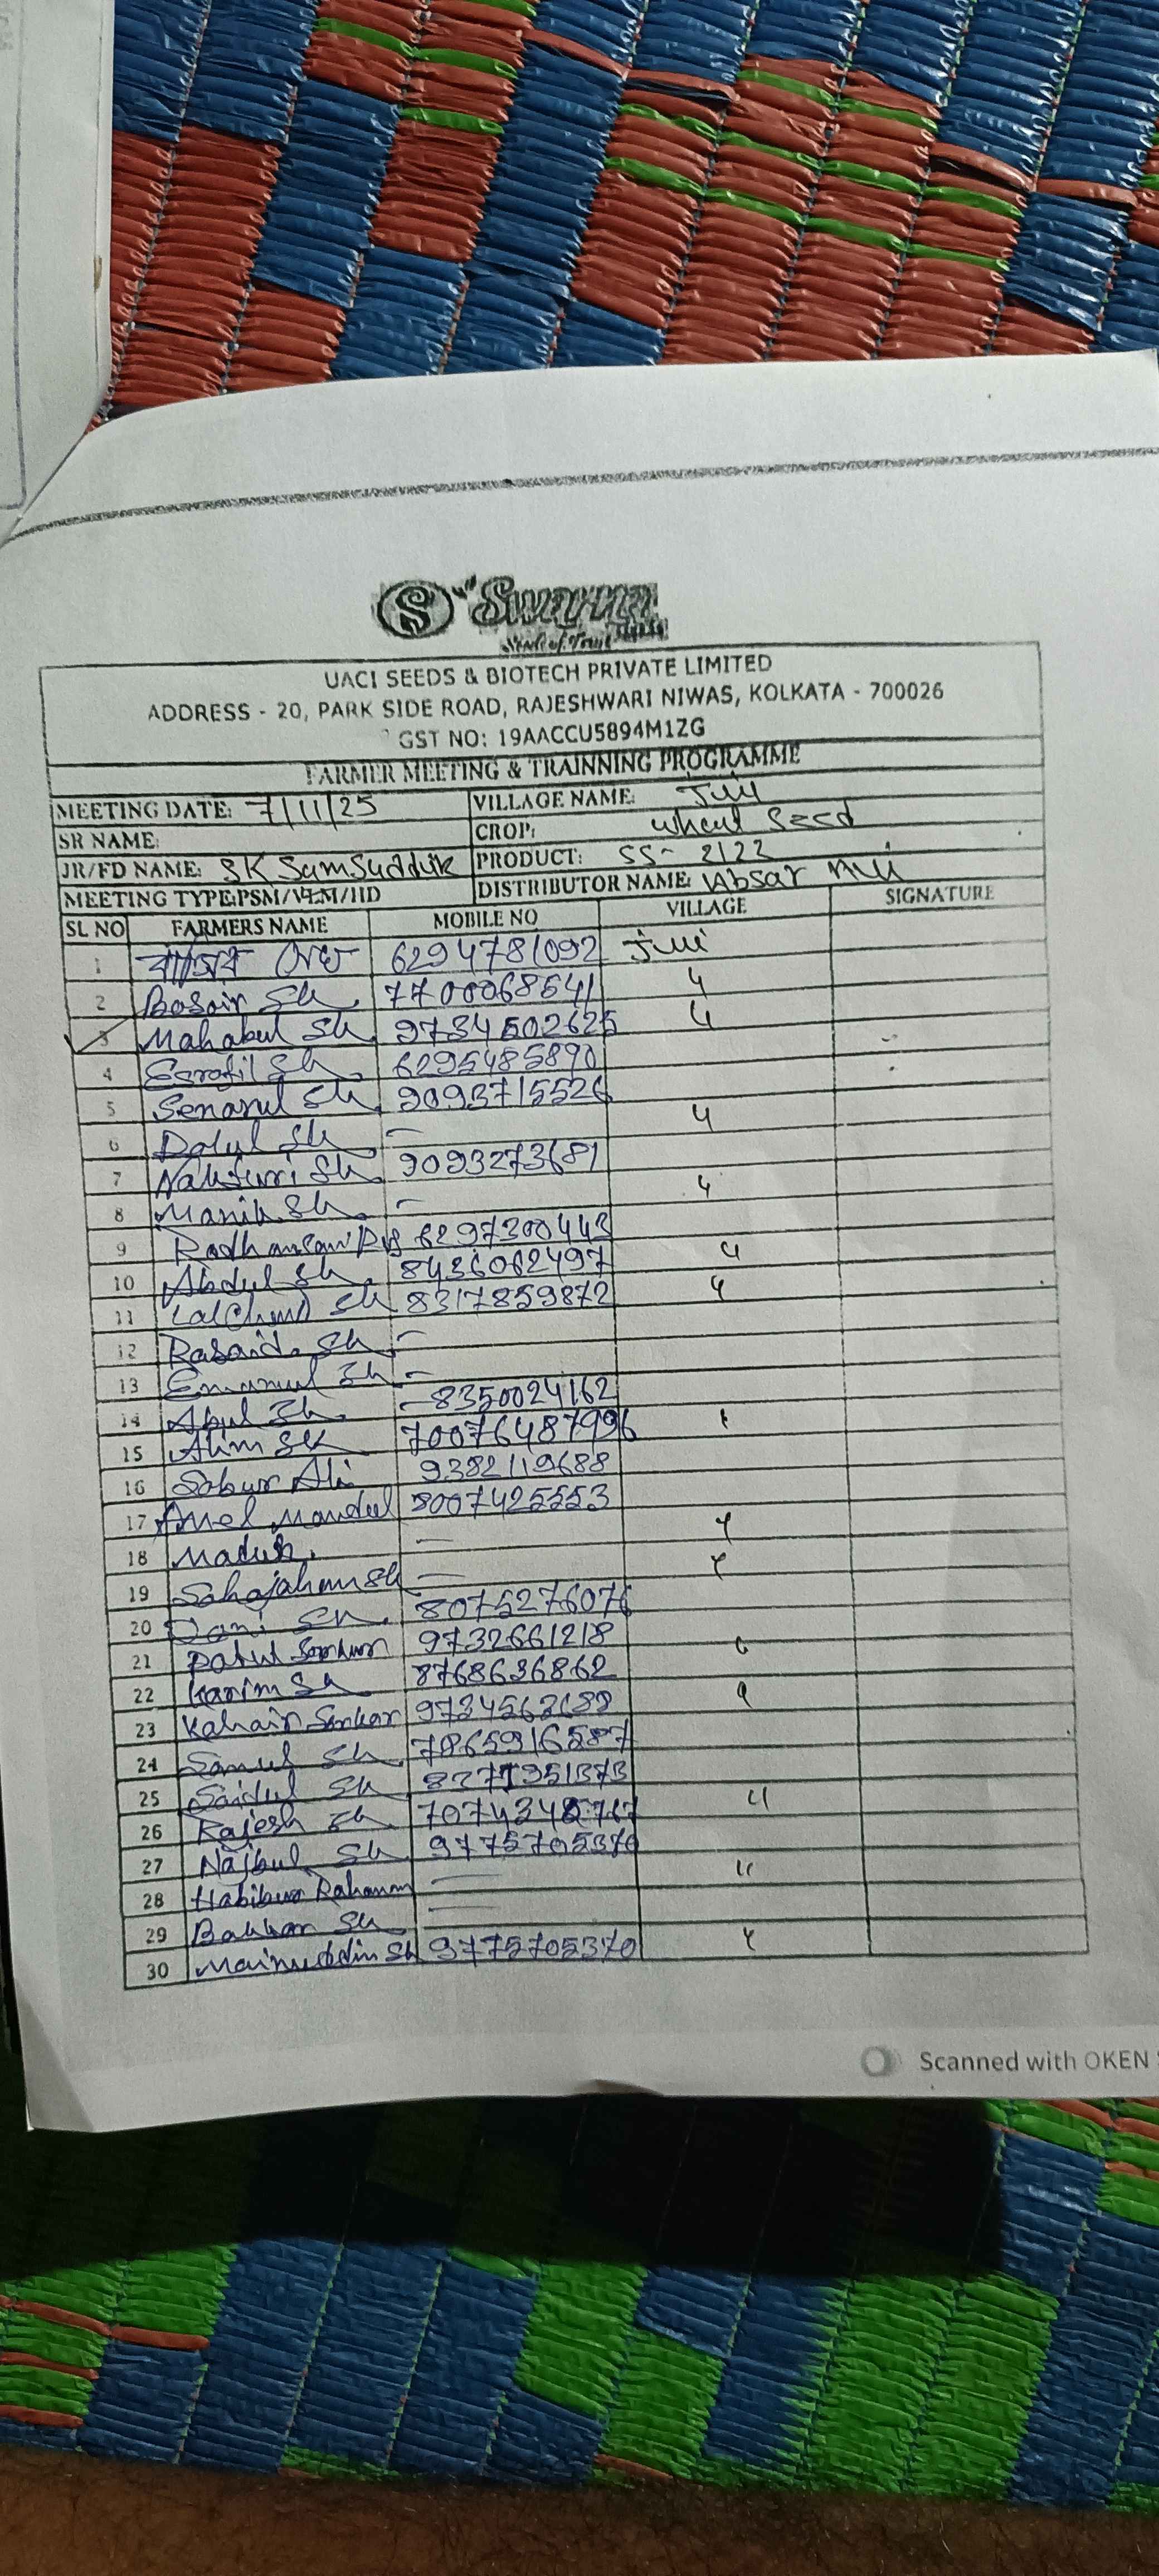 S Swarna
UACI SEEDS & BIOTECH PRIVATE LIMITED
ADDRESS - 20, PARK SIDE ROAD, RAJESHWARI NIWAS, KOLKATA - 700026
GST NO: 19AACCU5894M1ZG
FARMER MEETING & TRAINNING PROGRAMME
MEETING DATE: 7/11/25 VILLAGE NAME:
SR NAME: CROP: wheat Seed
JR/FD NAME: SK Samsudduk PRODUCT: SS- 2122
MEETING TYPE:PSM/VLM/HD DISTRIBUTOR NAME: Absar
SL NO FARMERS NAME MOBILE NO VILLAGE SIGNATURE
1 6294781092
2 Bosair Sk 7700068541 4
3 Mahabul Sk 9734502625 4
4 Esrofil Sk 6295485890
5 Senarul Sk 9093715526
6 Dolul Sk - 4
7 Sk 9093273681
8 Manik Sk - 4
9 6297300443
10 Abdul Sk 8436062497 4
11 LalChand Sk 8317859872 4
12 Rasaid Sk -
13 Emanul Sk -
14 Abul Sk - 8350024162
15 Alim SK 70076487996
16 Sobur Ali 9382119688
17 Mandal 8007425553
18 -
19 Sohajahan Sk -
20 Sk 8075276076
21 9732661218
22 Karim Sk 8768636862
23 Kahair Sarkar
24 Samul Sk 7865916587
25 Saidul Sk
26 Rajesh Sk
27 Najbul Sk 9775705370
28 Habibur Rahaman - "
29 Bakkar Sk -
30 Mainuddin Sk 9775705370
Scanned with OKEN